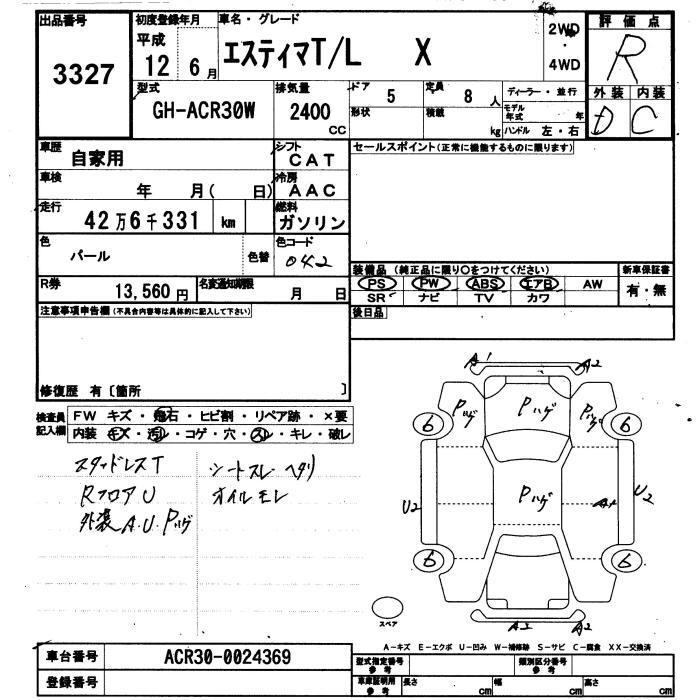 出品番号 初度登録年月 車名・グレード 評価点
3327 平成 12 6月 エスティマT/L X 2WD・4WD R
型式 排気量 ドア 定員 ディーラー・並行 外装 内装
GH-ACR30W 2400 CC 5 8人 モデル年式 年 D C
形状 積載 kg ハンドル 左・右
車歴 自家用 シフト CAT セールスポイント(正常に機能するものに限ります)
車検 年 月( 日) 冷房 AAC
走行 42万6千331 km 燃料 ガソリン
色 パール 色替 色コード 042
装備品(純正品に限り○をつけてください) 新車保証書
R券 13,560円 名変通知期限 月 日 PS PW ABS エアB AW 有・無
SR ナビ TV カワ
注意事項申告欄(不具合内容等は具体的に記入して下さい) 後日品
修復歴 有〔箇所 〕
検査員記入欄 FW キズ・飛石・ヒビ割・リペア跡・×要
内装 キズ・汚レ・コゲ・穴・スレ・キレ・破レ
スタッドレスT シートスレ・ヘタリ
RフロアU オイルモレ
外装A.U.Pハゲ
A1 A2
Pハゲ Pハゲ Pハゲ
6 6
Pハゲ
U2 A1 U2
6 6
スペア A2 A2
A-キズ E-エクボ U-凹み W-補修跡 S-サビ C-腐食 XX-交換済
車台番号 ACR30-0024369 型式指定番号 参考 類別区分番号 参考
登録番号 車庫証明用 参考 長さ cm 幅 cm 高さ cm